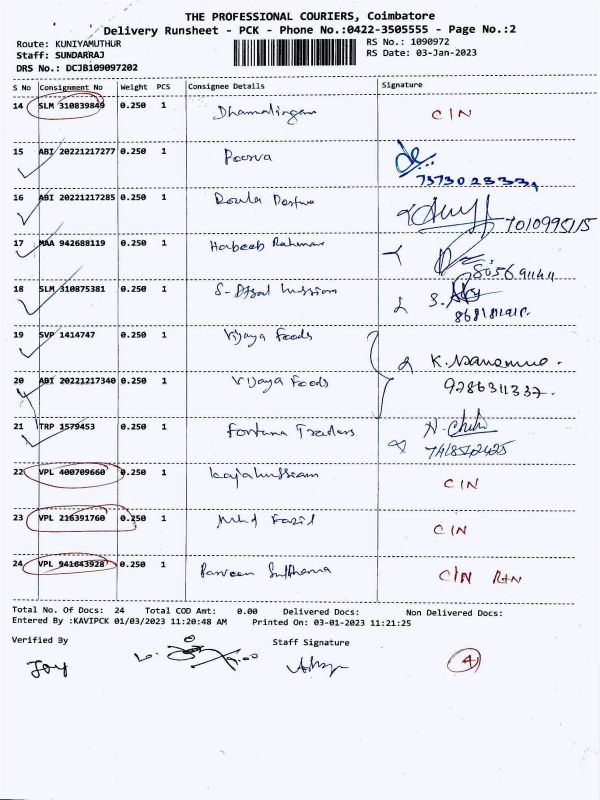 THE PROFESSIONAL COURIERS, Coimbatore
Delivery Runsheet - PCK - Phone No.:0422-3505555 - Page No.:2
Route: KUNIYAMUTHUR
Staff: SUNDARRAJ
DRS No.: DCJB109097202
RS No.: 1090972
RS Date: 03-Jan-2023
S No Consignment No Weight PCS Consignee Details Signature
14 SLM 310839849 0.250 1 Dhamalingam C/N
15 ABI 20221217277 0.250 1 Poorva
7373023339
16 ABI 20221217285 0.250 1
7010995115
17 MAA 942688119 0.250 1 Habeeb Rahman
18 SLM 310875381 0.250 1 S-Afzal hussian
19 SVP 1414747 1 0.250 1 Vijaya foods
20 ABI 20221217340 0.250 1 Vijaya foods
9786311337.
21 TRP 1579453 0.250 1 fortuna Traders
22 VPL 400709660 0.250 1 kajahussain C/N
23 VPL 216391760 0.250 1 Mhd Fazil C/N
24 VPL 941643928 0.250 1 Parveen Sulthana C/N R+N
Total No. Of Docs: 24 Total COD Amt: 0.00 Delivered Docs: Non Delivered Docs:
Entered By :KAVIPCK 01/03/2023 11:20:48 AM Printed On: 03-01-2023 11:21:25
Verified By Staff Signature
Joy
4